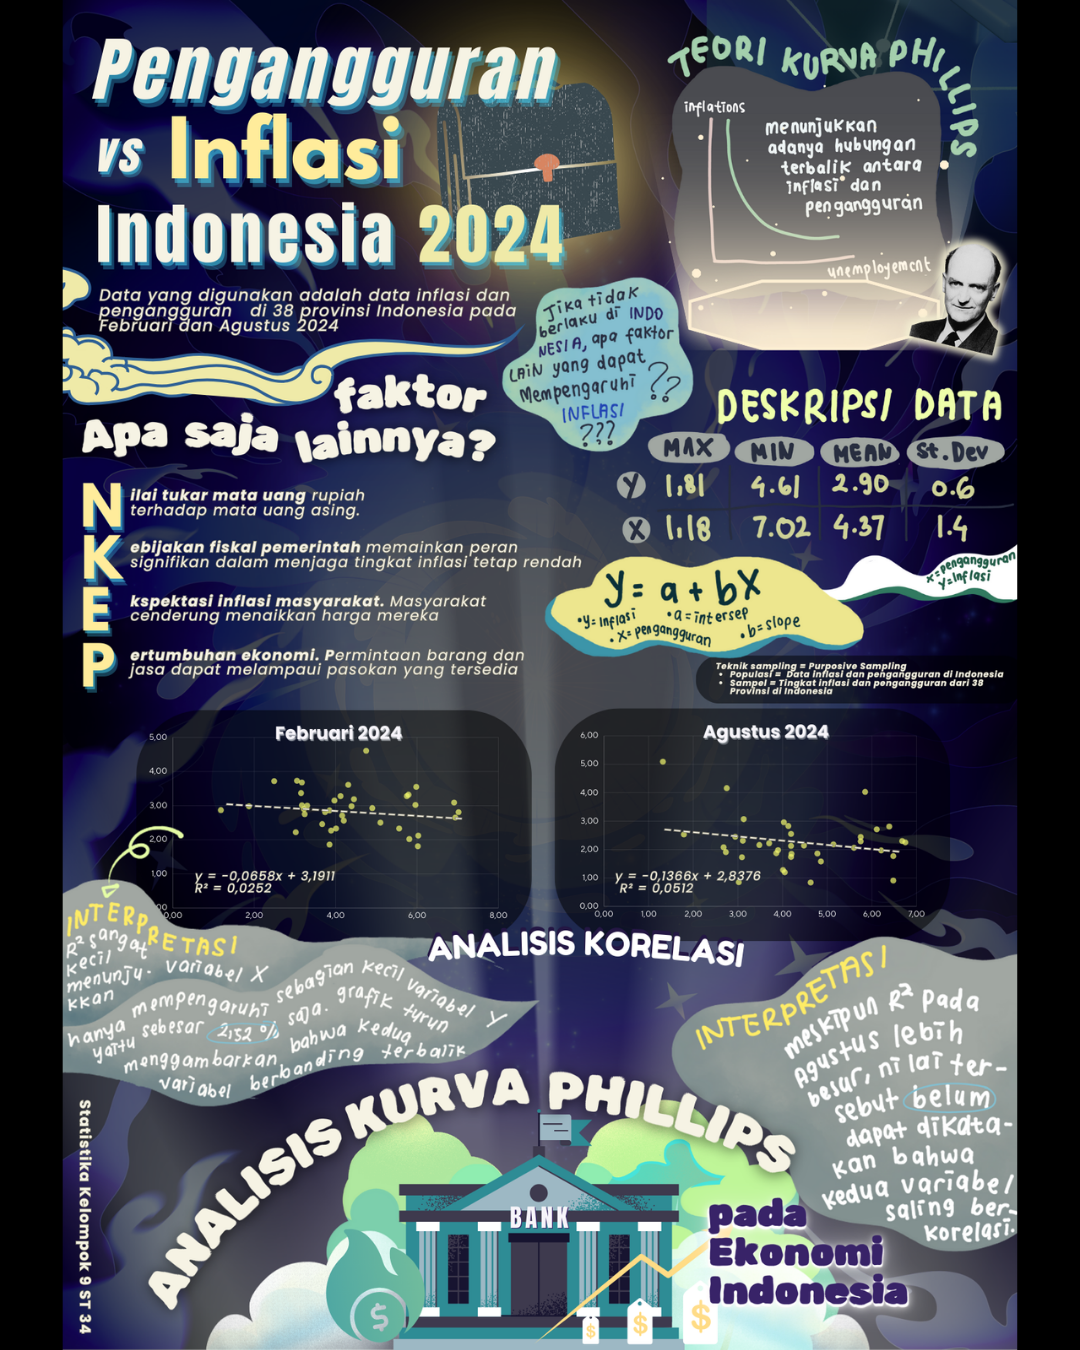 Pengangguran
vs Inflasi
Indonesia 2024
Data yang digunakan adalah data inflasi dan
pengangguran di 38 provinsi Indonesia pada
Februari dan Agustus 2024
TEORI KURVA PHILLIPS
inflations
menunjukkan
adanya hubungan
terbalik antara
inflasi dan
pengangguran
unemployement
Jika tidak
berlaku di INDO
NESIA, apa faktor
LAIN yang dapat
Mempengaruhi ??
INFLASI
???
faktor
Apa saja lainnya?
Nilai tukar mata uang rupiah
terhadap mata uang asing.
Kebijakan fiskal pemerintah memainkan peran
signifikan dalam menjaga tingkat inflasi tetap rendah
Ekspektasi inflasi masyarakat. Masyarakat
cenderung menaikkan harga mereka
Pertumbuhan ekonomi. Permintaan barang dan
jasa dapat melampaui pasokan yang tersedia
DESKRIPSI DATA
MAX MIN MEAN St.Dev
Y 1,81 4.61 2.90 0.6
X 1,18 7.02 4.37 1.4
x=pengangguran
y=Inflasi
y = a + bx
•y=Inflasi •a=intersep
•x=pengangguran •b=slope
Teknik sampling = Purposive Sampling
• Populasi = Data Inflasi dan pengangguran di Indonesia
• Sampel = Tingkat inflasi dan pengangguran dari 38
Provinsi di Indonesia
Februari 2024
5,00
4,00
3,00
2,00
1,00
00
0,00 2,00 4,00 6,00 8,00
y = -0,0658x + 3,1911
R² = 0,0252
Agustus 2024
6,00
5,00
4,00
3,00
2,00
1,00
0,00
0,00 1,00 2,00 3,00 4,00 5,00 6,00 7,00
y = -0,1366x + 2,8376
R² = 0,0512
ANALISIS KORELASI
INTERPRETASI
R² sangat
kecil
menunju-
kkan variabel X
mempengaruhi sebagian kecil variabel Y
hanya sebesar 2,52 % saja. grafik turun
yaitu menggambarkan bahwa kedua
variabel berbanding terbalik
INTERPRETASI
meskipun R² pada
Agustus lebih
besar, nilai ter-
sebut belum
dapat dikata-
kan bahwa
kedua variabel
saling ber-
korelasi.
ANALISIS KURVA PHILLIPS
BANK
pada
Ekonomi
Indonesia
$
$
$
$
Statistika Kelompok 9 ST34